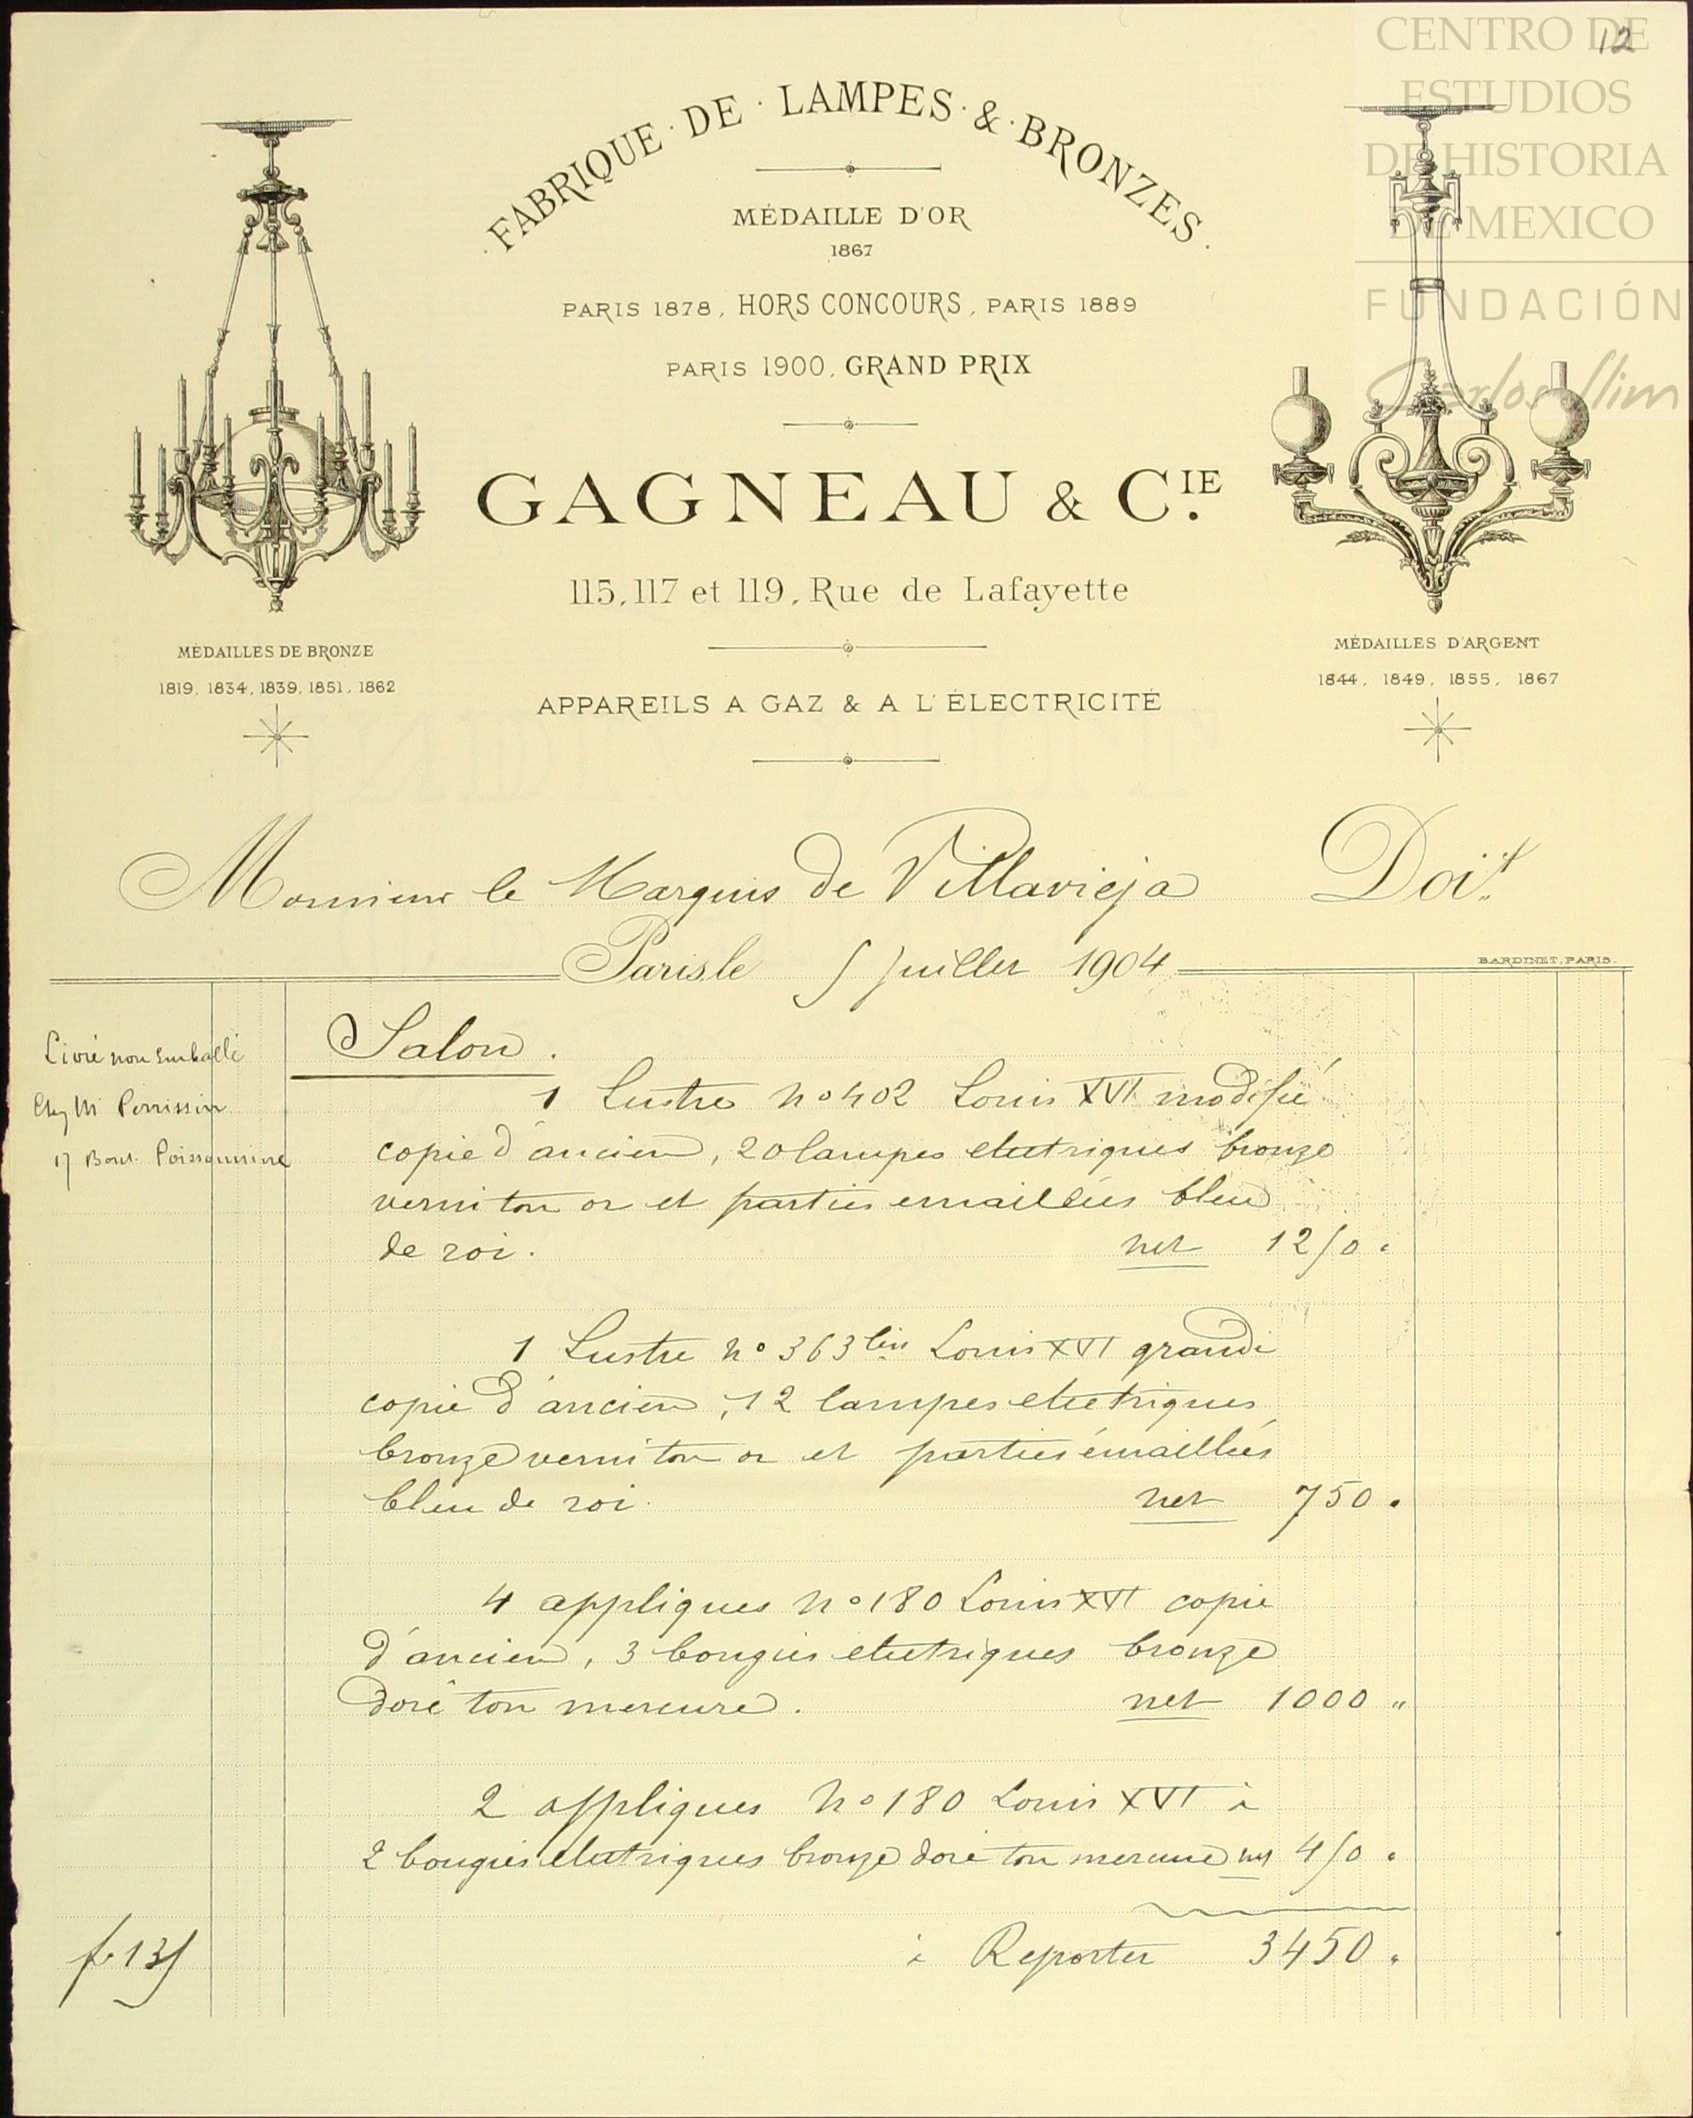 CENTRO DE
ESTUDIOS
DE HISTORIA
DE MEXICO
FUNDACIÓN
Carlos Slim
12
FABRIQUE · DE · LAMPES · & · BRONZES
MÉDAILLE D'OR
1867
PARIS 1878, HORS CONCOURS, PARIS 1889
PARIS 1900, GRAND PRIX
GAGNEAU & CIE.
115, 117 et 119, Rue de Lafayette
MÉDAILLES DE BRONZE
1819, 1834, 1839, 1851, 1862
MÉDAILLES D'ARGENT
1844, 1849, 1855, 1867
APPAREILS A GAZ & A L'ÉLECTRICITÉ
Monsieur le Marquis de Villavieja Doit
Paris, le 5 Juillet 1904
BARDINET, PARIS.
Livré non emballé
Chez Mr Perrissin
17 Boul. Poissonnière
Salon.
1 Lustre no 402 Louis XVI modifié
copie d'ancien, 20 lampes electriques bronze
verni ton or et parties emaillées bleu
de roi. net 1250 "
1 Lustre no 363 bis Louis XVI grandi
copie d'ancien, 12 lampes electriques
bronze verni ton or et parties émaillées
bleu de roi. net 750 "
4 appliques no 180 Louis XVI copie
d'ancien, 3 bougies electriques bronze
doré ton mercure. net 1000 "
2 appliques No 180 Louis XVI à
2 bougies electriques bronze doré ton mercure net 450 "
à Reporter 3450 "
fo 135